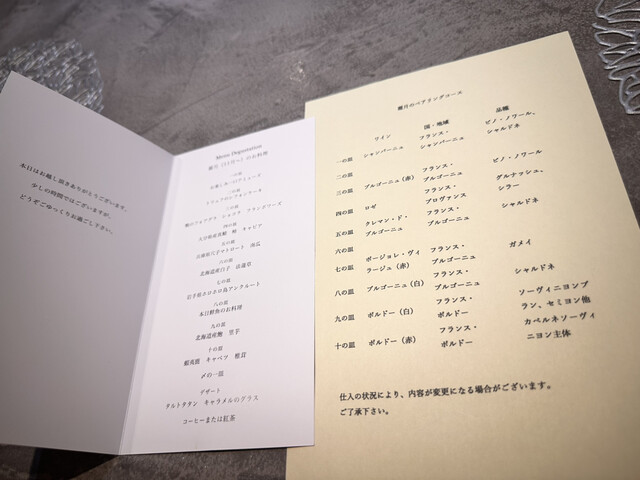 本日はお越し頂きありがとうございます。
少しの時間ではございますが、
どうぞごゆっくりお過ごし下さい。
Menu Degustation
霜月（11月～）のお料理
一の皿
二の皿
三の皿
鴨のフォアグラ ショコラ フランボワーズ
四の皿
大分県産真鯛 柿 キャビア
五の皿
マトロート 南瓜
六の皿
北海道産白子 法蓮草
七の皿
岩手県かロネロ鳥アンクルート
八の皿
本日鮮魚のお料理
九の皿
北海道産鮑 里芋
十の皿
蝦夷鹿 キャベツ 椎茸
〆の一皿
デザート
タルトタタン キャラメルのグラス
コーヒーまたは紅茶
霜月のペアリングコース
ワイン 国・地域 品種
一の皿 シャンパーニュ フランス・シャンパーニュ ピノ・ノワール、シャルドネ
二の皿
三の皿 ブルゴーニュ（赤） フランス・ブルゴーニュ ピノ・ノワール
四の皿 ロゼ フランス・プロヴァンス グルナッシュ、シラー
五の皿 クレマン・ド・ブルゴーニュ フランス・ブルゴーニュ シャルドネ
六の皿
七の皿 ボージョレ・ヴィラージュ（赤） フランス・ブルゴーニュ ガメイ
八の皿 ブルゴーニュ（白） フランス・ブルゴーニュ シャルドネ
九の皿 ボルドー（白） フランス・ボルドー ソーヴィニヨンブラン、セミヨン他
十の皿 ボルドー（赤） フランス・ボルドー カベルネソーヴィニヨン主体
仕入の状況により、内容が変更になる場合がございます。
ご了承下さい。